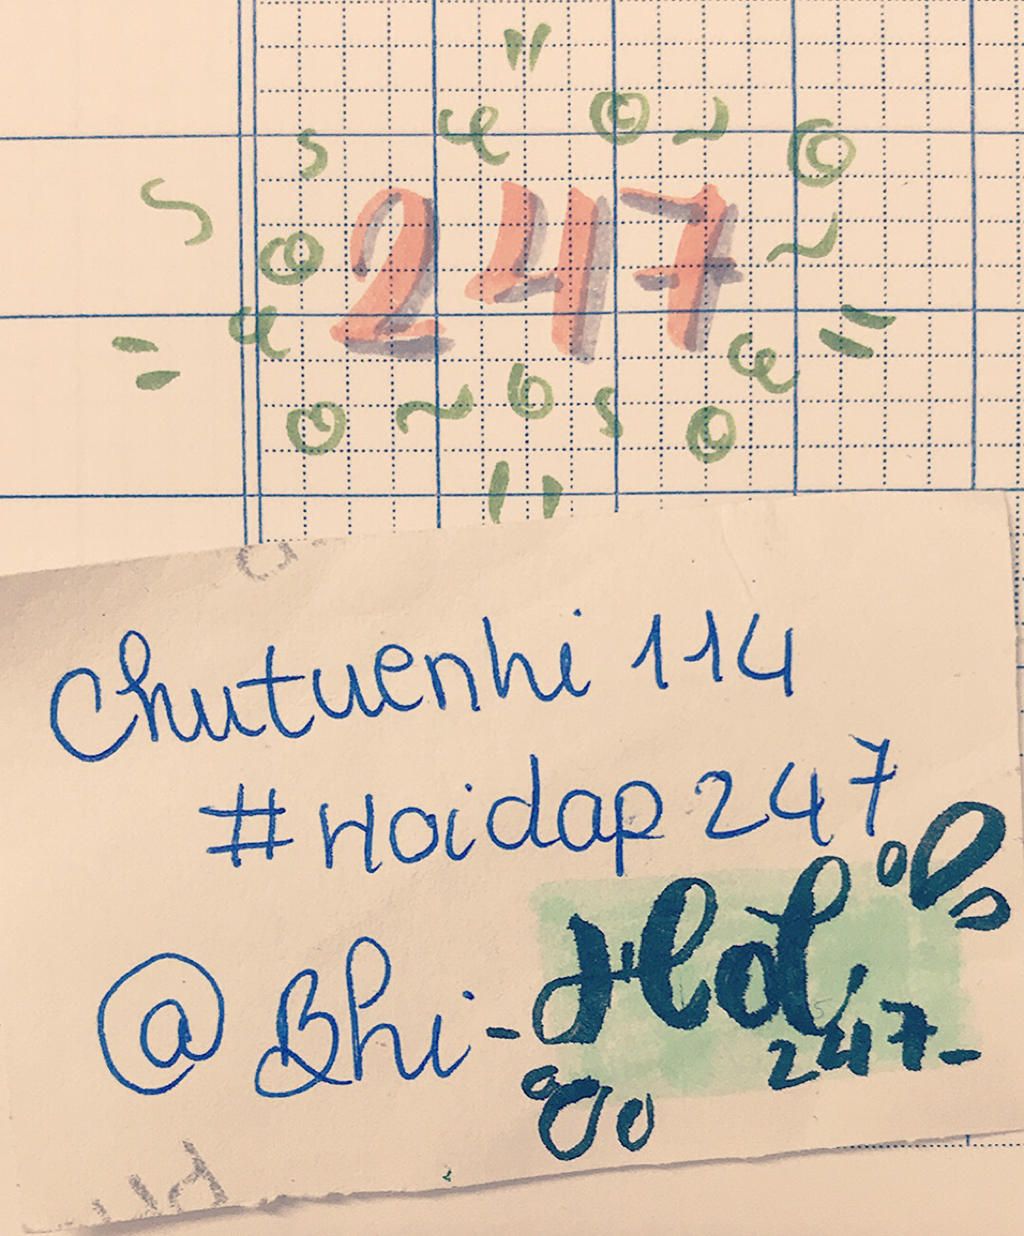 247
Chutuenhi 114
#Hoidap 247
@Bhi - Hd
247-